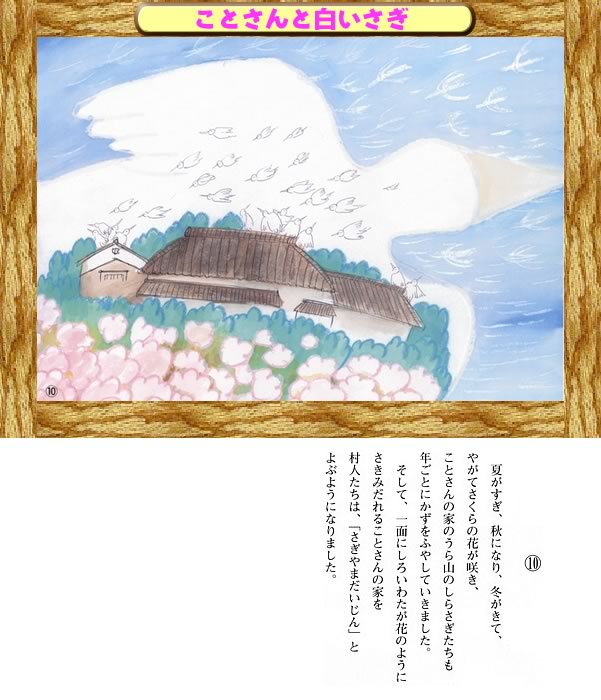 ことさんと白いさぎ
⑩
⑩
夏がすぎ、秋になり、冬がきて、
やがてさくらの花が咲き、
ことさんの家のうら山のしらさぎたちも
年ごとにかずをふやしていきました。
そして、一面にしろいわたが花のように
さきみだれることさんの家を
村人たちは、「さぎやまだいじん」と
よぶようになりました。